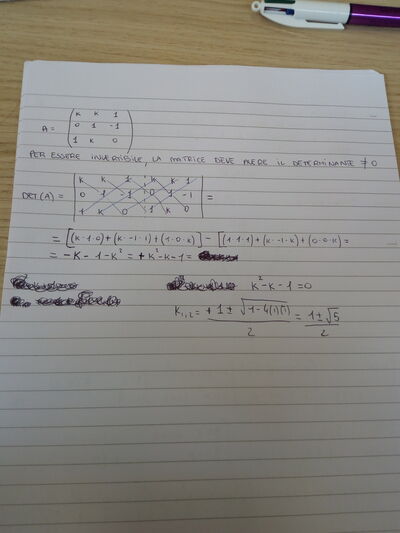 A = ( K K 1
0 1 -1
1 K 0 )
PER ESSERE INVERTIBILE, LA MATRICE DEVE AVERE IL DETERMINANTE ≠0
DET(A) = | K K 1 K K 1
0 1 -1 0 1 -1
1 K 0 1 K 0 | =
= [(K·1·0)+(K·-1·1)+(1·0·K)] - [(1·1·1)+(K·-1·K)+(0·0·K)=
= -K-1-K² = +K²-K-1=
K²-K-1=0
K₁,₂= +1±√1-4(1)(1) / 2 = 1±√5 / 2